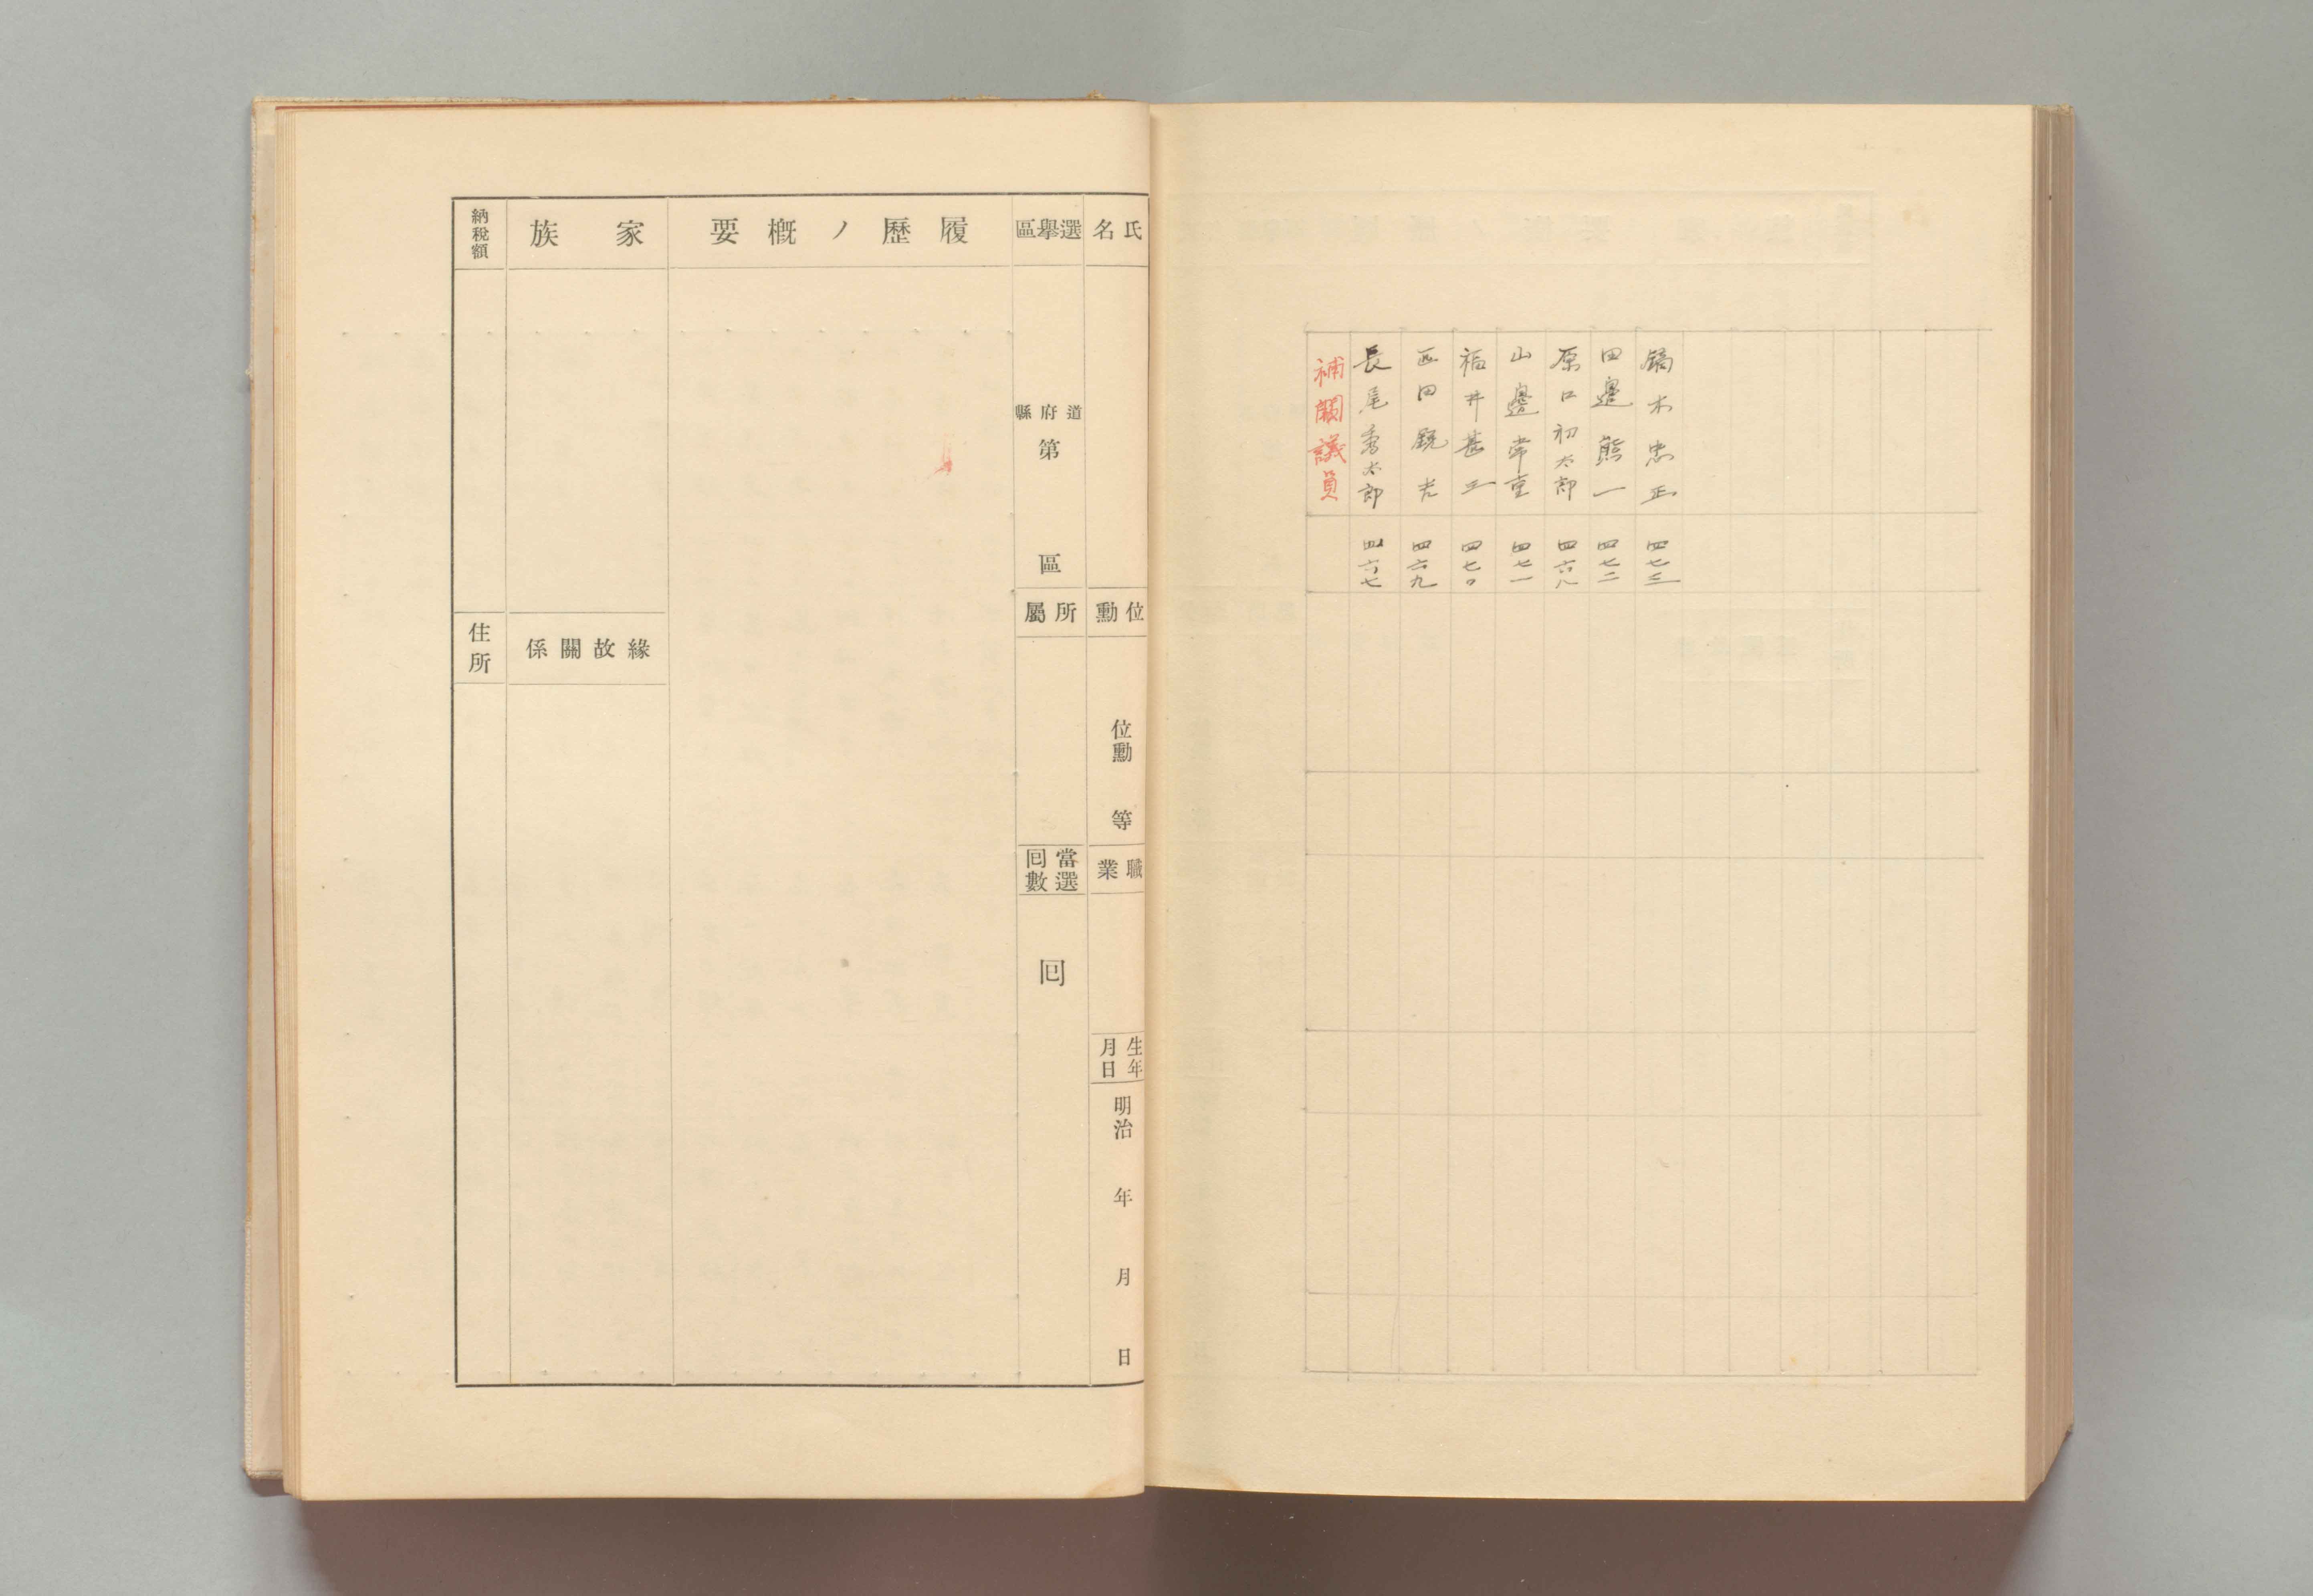 補闕議員
長尾秀太郎 四六七
匹田鋭吉 四六九
福井甚三 四七〇
山邊常重 四七一
原口初太郎 四六八
田邊熊一 四七二
鏑木忠正 四七三
氏名
位勳
位勳 等
職業
生年月日
明治 年 月 日
選擧區
道府縣
第 區
所屬
當選回數
回
履歷ノ概要
家族
緣故關係
納稅額
住所